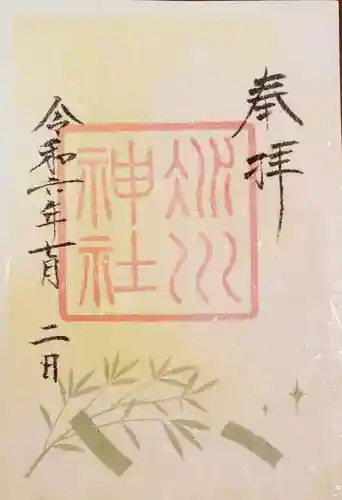 奉拝
氷川
神社
令和六年七月二日